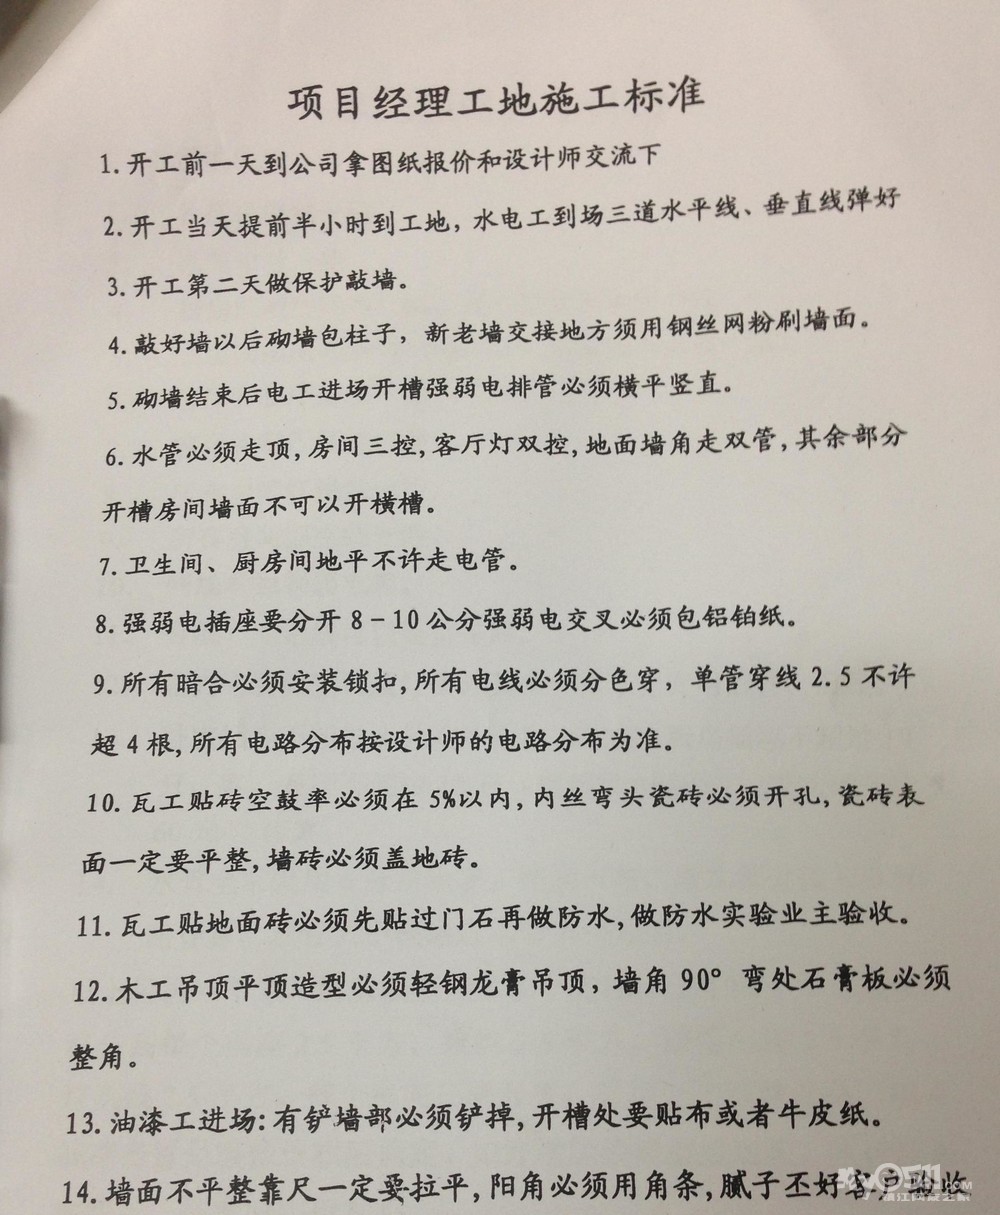 项目经理工地施工标准
1.开工前一天到公司拿图纸报价和设计师交流下
2.开工当天提前半小时到工地，水电工到场三道水平线、垂直线弹好
3.开工第二天做保护敲墙。
4.敲好墙以后砌墙包柱子，新老墙交接地方须用钢丝网粉刷墙面。
5.砌墙结束后电工进场开槽强弱电排管必须横平竖直。
6.水管必须走顶,房间三控,客厅灯双控,地面墙角走双管,其余部分
开槽房间墙面不可以开横槽。
7.卫生间、厨房间地平不许走电管。
8.强弱电插座要分开8-10公分强弱电交叉必须包铝铂纸。
9.所有暗合必须安装锁扣,所有电线必须分色穿，单管穿线2.5不许
超4根,所有电路分布按设计师的电路分布为准。
10.瓦工贴砖空鼓率必须在5%以内,内丝弯头瓷砖必须开孔,瓷砖表
面一定要平整,墙砖必须盖地砖。
11.瓦工贴地面砖必须先贴过门石再做防水,做防水实验业主验收。
12.木工吊顶平顶造型必须轻钢龙膏吊顶，墙角90°弯处石膏板必须
整角。
13.油漆工进场:有铲墙部必须铲掉,开槽处要贴布或者牛皮纸。
14.墙面不平整靠尺一定要拉平,阳角必须用角条,腻子丕好客户验收